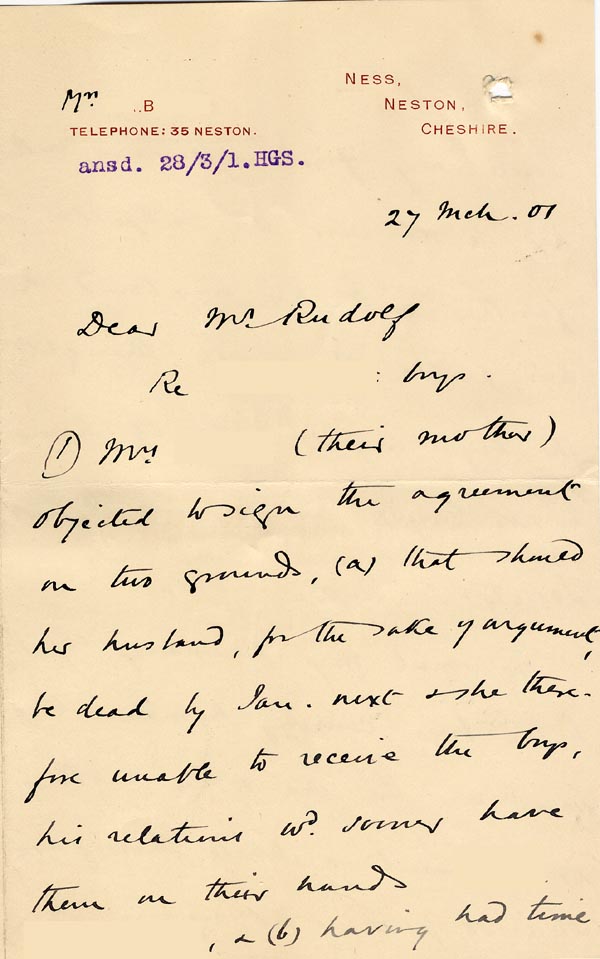 NESS,
NESTON,
CHESHIRE.
B
TELEPHONE: 35 NESTON.
ansd. 28/3/1.HGS.
27 Mch. 01
Dear Mr Rudolf
Re : boys.
(1) Mrs (their mother)
objected to sign the agreement
on two grounds, (a) that should
her husband, for the sake of argument,
be dead by Jan. next & she there-
fore unable to receive the boys,
his relations wd. sooner have
them on their hands
, & (b) having had time